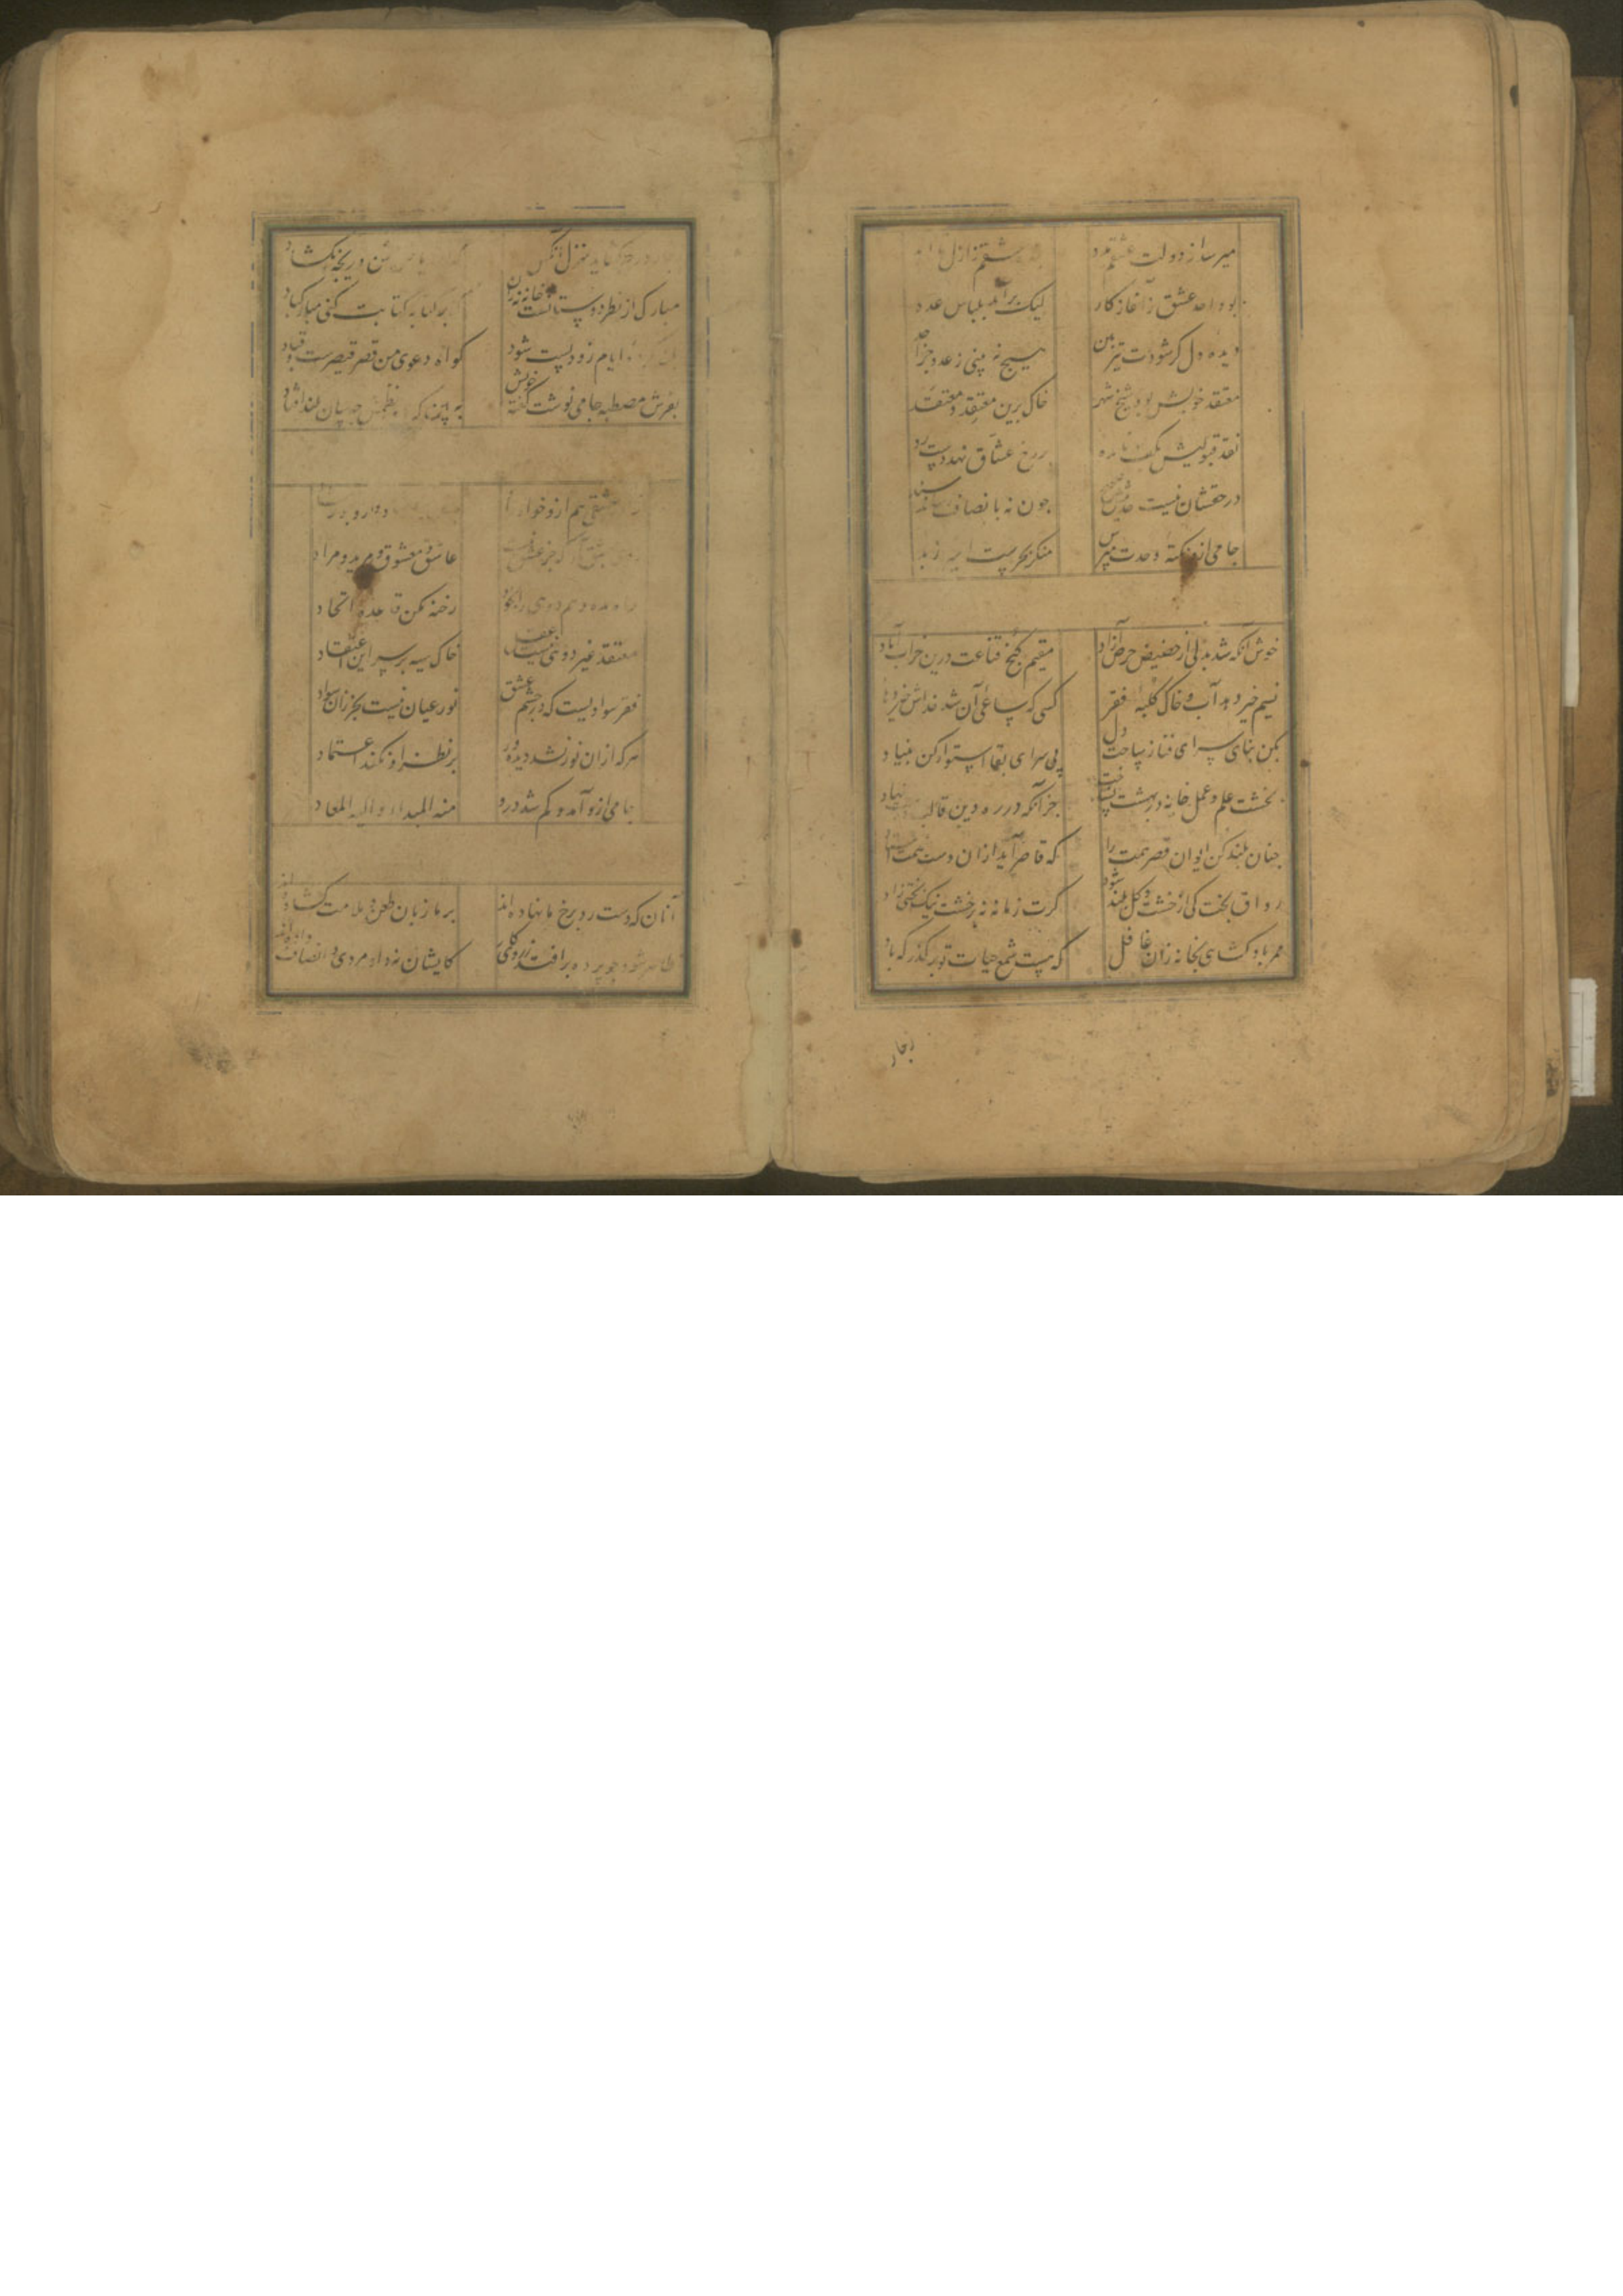 میرسد از دولت عشقم مدد
عشقم ز ازل تا ابد
بود احد عشق ز آغاز کار
لیک برآمد بلباس عدد
دیده دل کر شودت تیزبین
هیچ نه بینی ز عدد جز احد
معتقد خویش بود شیخ شهر
خاک برین معتقد و معتقد
نقد قبولیش بکف نامده
بر رخ عشاق نهد دست رد
در حقشان نیست حدیثش صحیح
چون نه بانصاف رساند سند
جامی ازو نکته وحدت مپرس
منکر بحرست
خوش آنکه شد بدلی از حضیض حرص آزاد
مقیم کنج قناعت درین خراب آباد
نسیم خیر دهد آب و خاک کلبه فقر
کسی که ساعی آن شد خداش خیر دهاد
بکن بنای سرای فنا ز ساحت دل
پی سرای بقا استوار کن بنیاد
بخشت علم و عمل خانه در بهشت نساخت
جز آنکه در ره دین قالب
چنان بلند کن ایوان قصر همت را
که قاصر آید ازان دست همت
رواق بخت کی از خشت و کل بلند شود
کرت زمانه نه بر خشت نیک بختی زاد
ممر باد کشای بخانه زان غافل
که هست شمع حیات تو بر کذرکه باد
بجار
بجار در چه کشاید بمنزل آنکس
دریچه نکشاد
مبارک از نظر دوستانست خانه نه زان
بر آستانه کتابت کنی مبارک باد
ایام زود پست شود
کواه دعوی من قصر قیصرست و قباد
بعرش مصطبه جامی نوشت کفته خویش
به این که نظمش چه سان بلند افتاد
عشقی هم ازو خواه داد
عاشق و معشوق و مرید و مراد
راه مده وهم دوی را بخود
رخنه مکن قاعده اتحاد
معتقد غیر دوئی نیست عقل
خاک سیه بر سر این اعتقاد
فقر سوادیست که در چشم عشق
نور عیان نیست بجز زان سواد
هر که ازان نور نشد دیده ور
بر نظر او نکند اعتماد
جامی ازو آمد و کم شد درو
منه المبدا و الیه المعاد
آنان که دست رد برخ ما نهاده اند
بر ما زبان طعن و ملامت کشاده اند
ظاهر شود چو پرده برافتد ز روی کار
کایشان نه داد مردی و انصاف داده اند